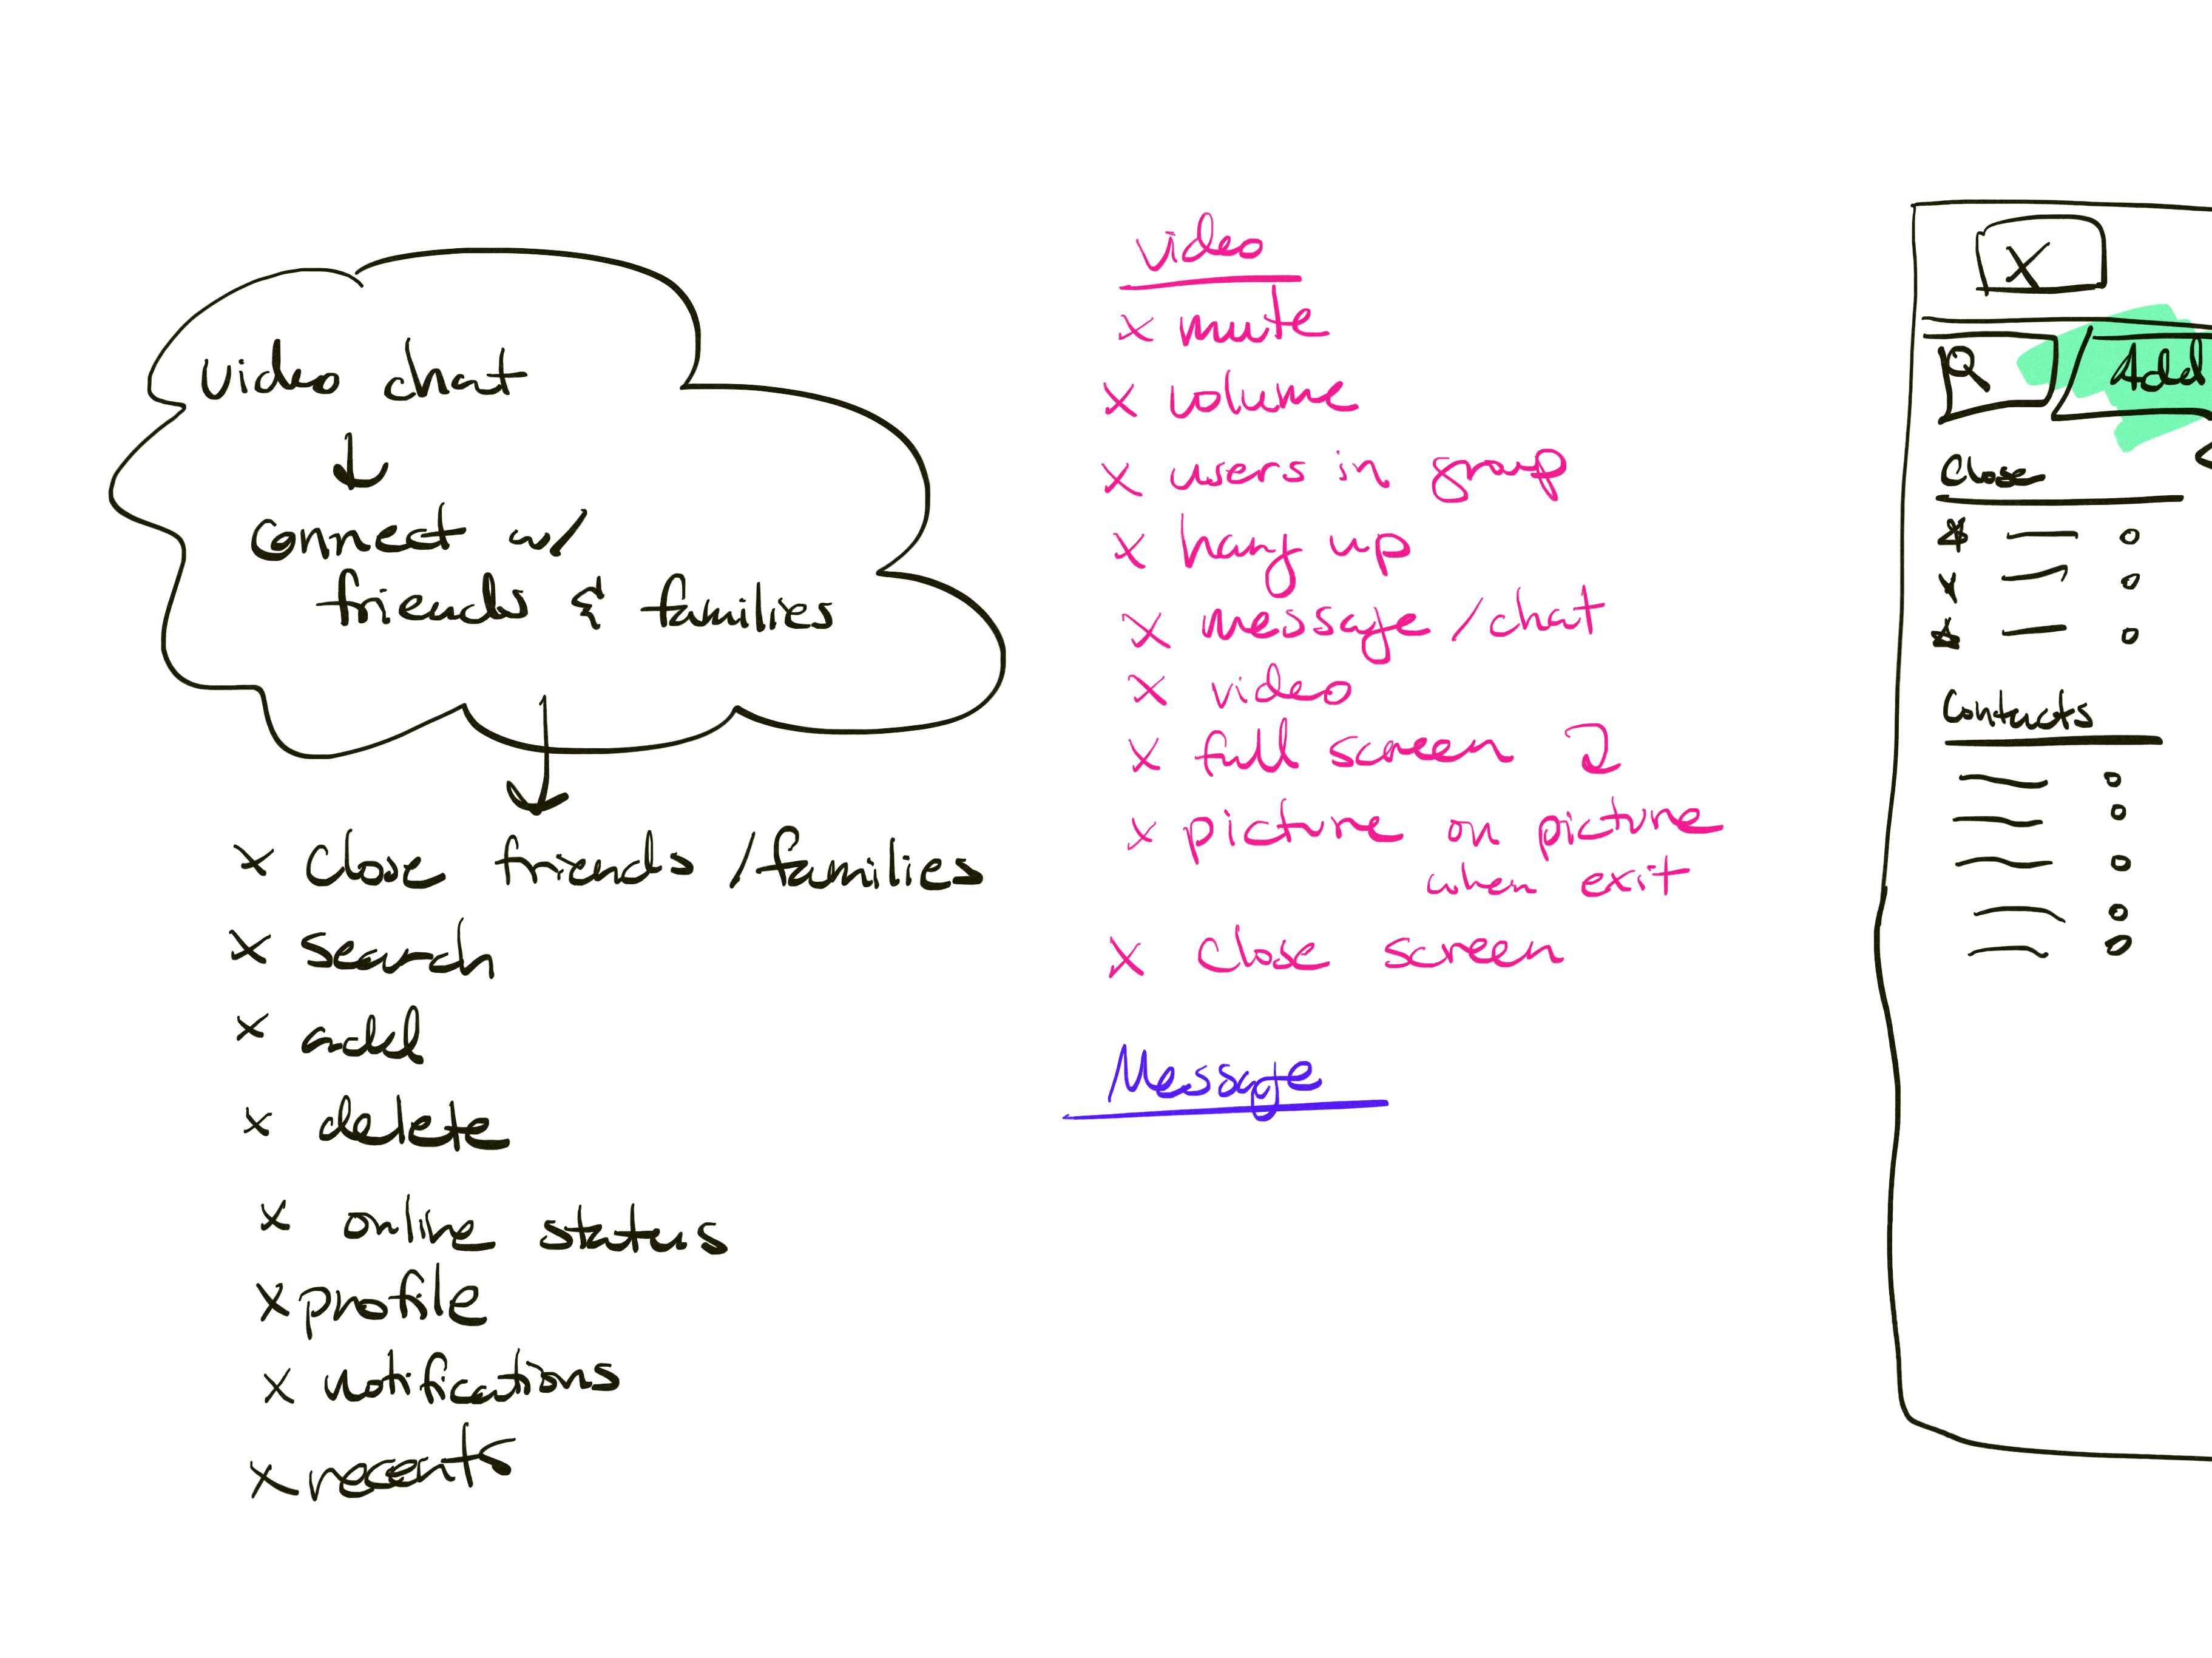 video chat
connect w/
friends & families
x close friends / families
x search
x add
x delete
x online status
x profile
x notifications
x recents
video
x mute
x volume
x users in group
x hang up
x message / chat
x video
x full screen
x picture on picture
when exit
x close screen
Message
X
Add
Close
Contacts